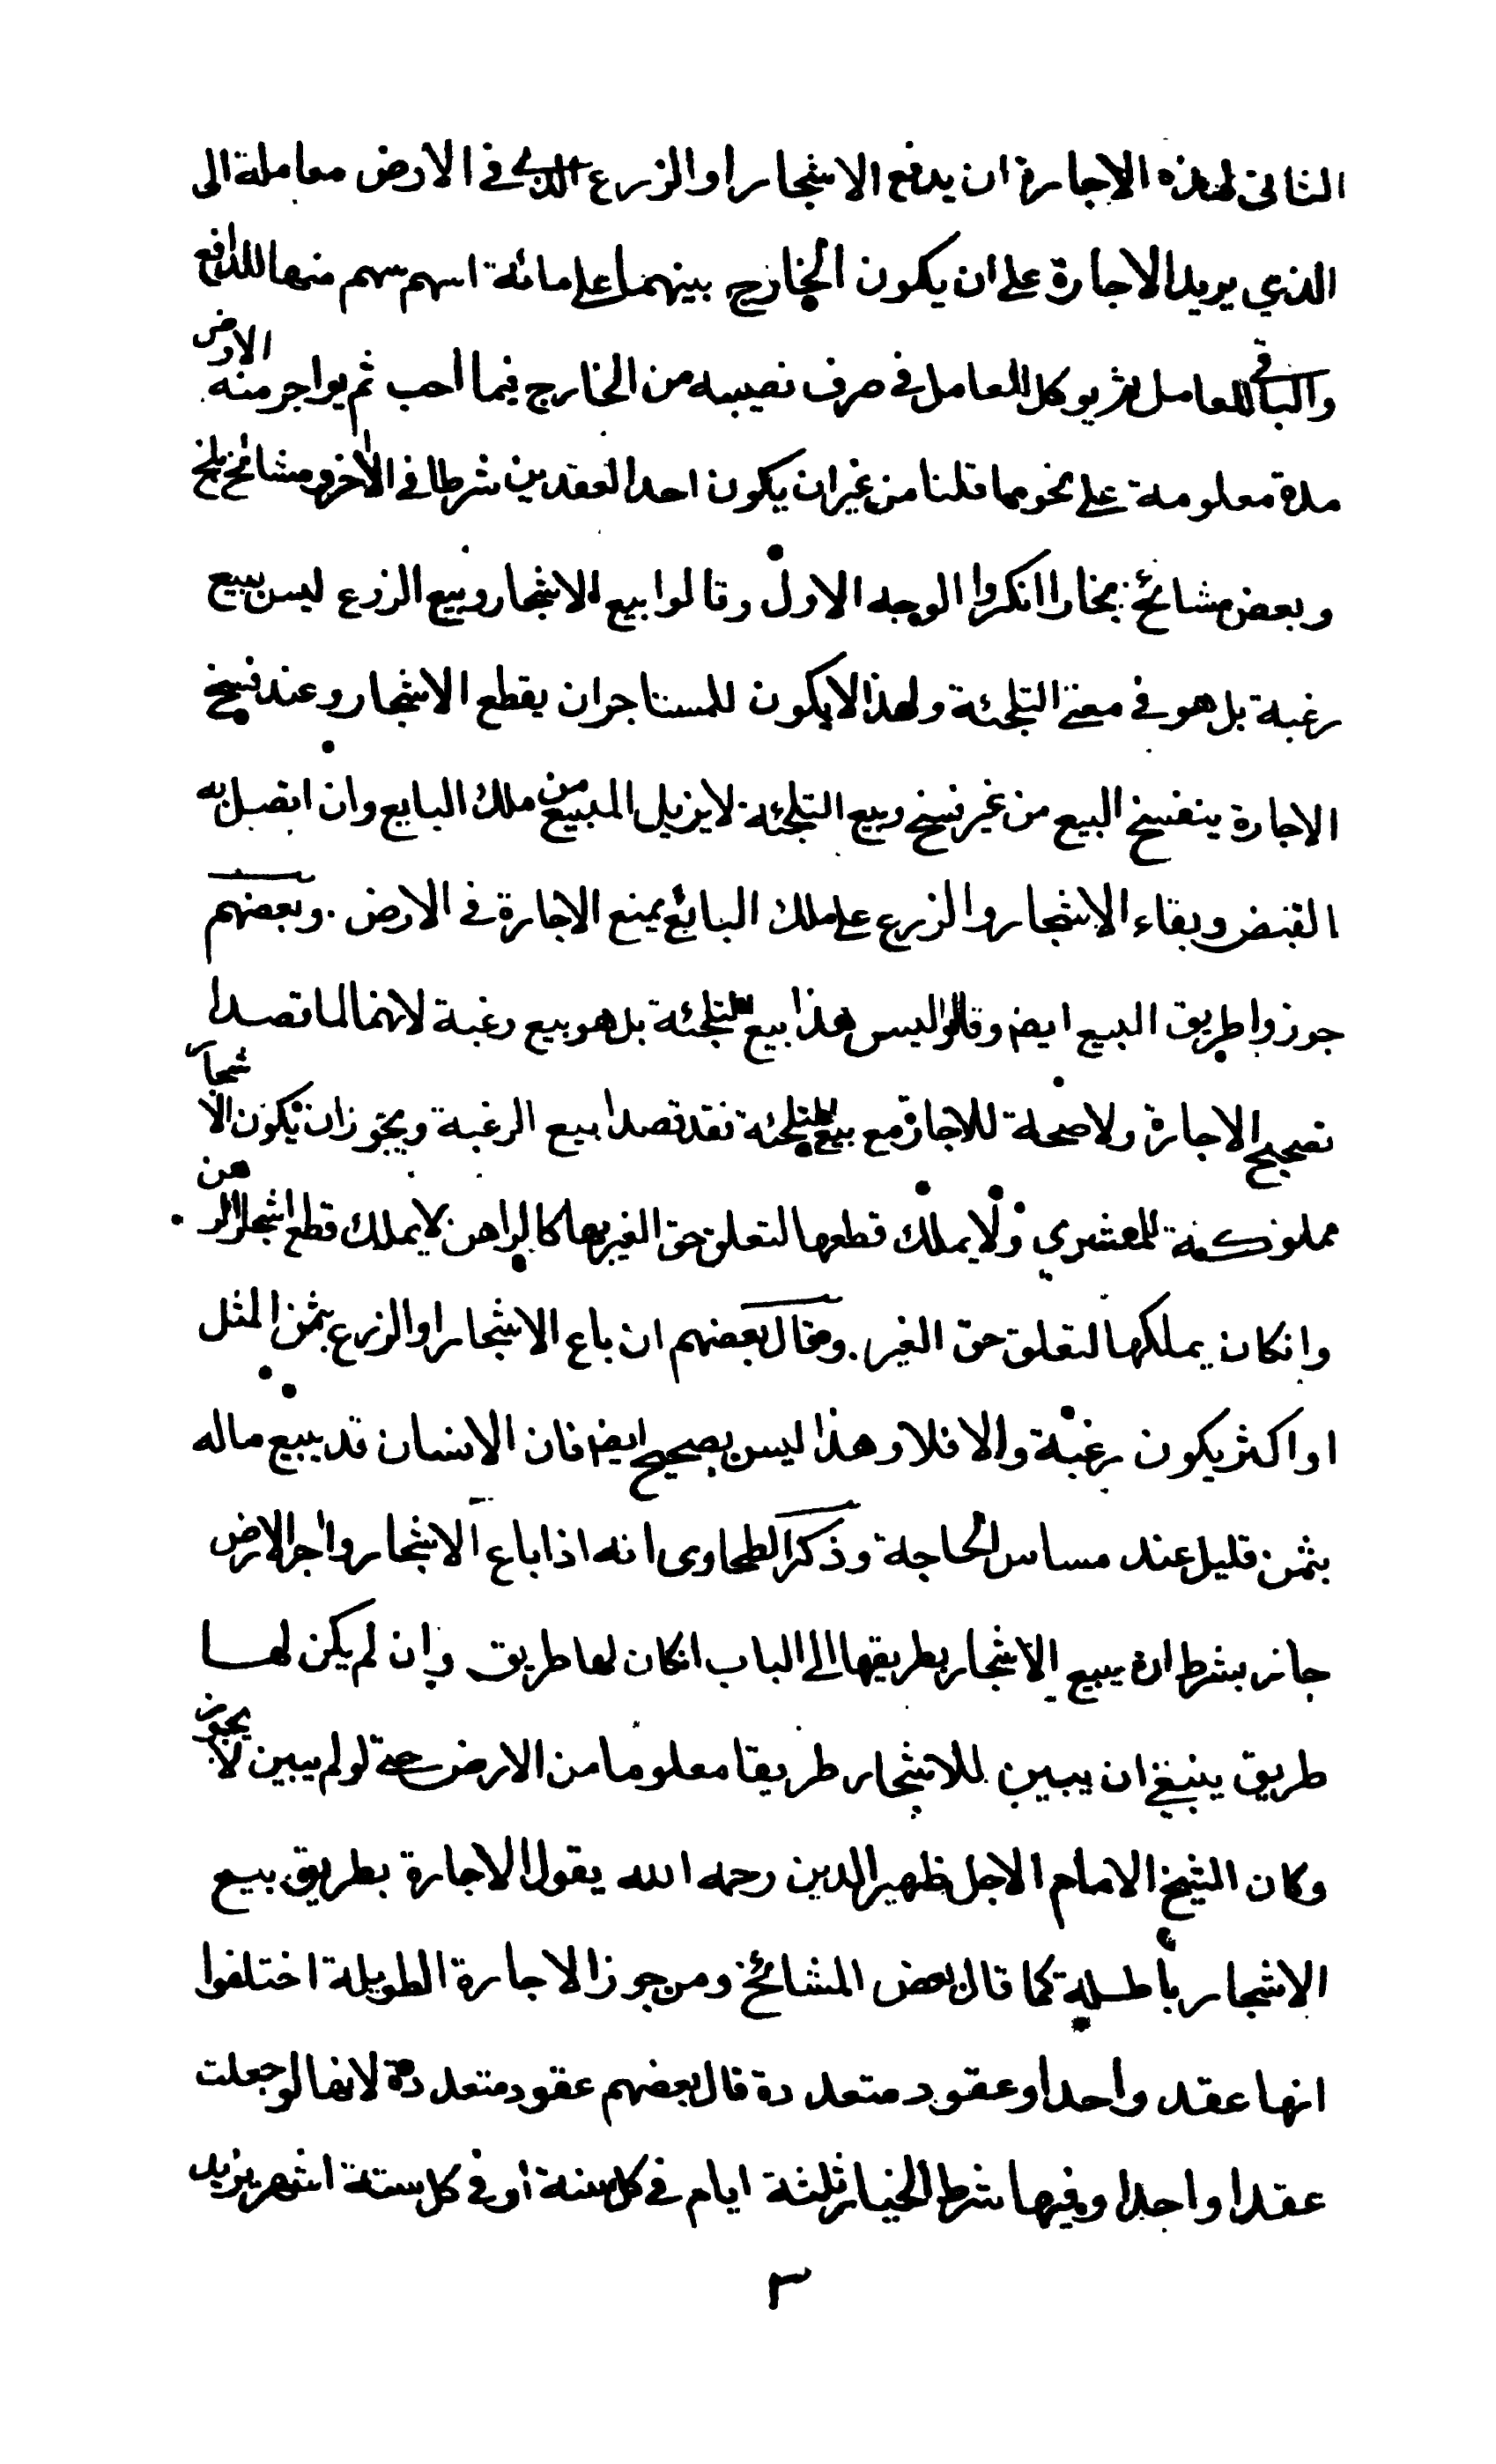 الثانى لهذه الاجارة ان يدفع الاشجار او الزرع الذي في الارض معاملة الى
الذي يريد الاجارة على ان يكون الخارج بينهما على مائة اسهم سهم منها للدافع
والباقي للعامل ثم يوكل العامل في صرف نصيبه من الخارج فيما احب ثم يواجر منه الارض
مدة معلومة على نحو مما قلنا من غير ان يكون احد العقدين شرطا في الاٰخر ومشائخ بلخ
وبعض مشائخ بخارا انكروا الوجه الاول وقالوا بيع الاشجار وبيع الزرع ليس ببيع
رغبة بل هو في معنى التلجئة ولهذا لا يكون للمستاجر ان يقطع الاشجار وعند فسخ
الاجارة ينفسخ البيع من غير فسخ وبيع التلجئة لا يزيل المبيع من ملك البايع وان اتصل به
القبض وبقاء الاشجار والزرع على ملك البائع يمنع الاجارة في الارض . وبعضهم
جوزوا طريق البيع ايضا وقالوا ليس هذا بيع التلجئة بل هو بيع رغبة لانهما لما قصدا
تصحيح الاجارة ولا صحة للاجارة مع بيع التلجئة فقد قصدا بيع الرغبة ويجوز ان تكون الاشجار
مملوكة للمشتري ولا يملك قطعها لتعلق حق الغير بها كالراهن لا يملك قطع اشجار الرهن
وانكان يملكها لتعلق حق الغير . وقال بعضهم ان باع الاشجار او الزرع بثمن المثل
او اكثر يكون رغبة والا فلا وهذا ليس بصحيح ايضا فان الانسان قد يبيع ماله
بثمن قليل عند مساس الحاجة وذكر الطحاوى انه اذا باع الاشجار واٰجر الارض
جاز بشرط ان يبيع الاشجار بطريقها الى الباب انكان لها طريق وان لم يكن لها
طريق ينبغي ان يبين للاشجار طريقا معلوما من الارض حتى لو لم يبين لا يجوز
وكان الشيخ الامام الاجل ظهير الدين رحمه الله يقول الاجارة بطريق بيع
الاشجار باطلة كما قال بعض المشائخ ومن جوز الاجارة الطويلة اختلفوا
انها عقد واحد او عقود متعددة قال بعضهم عقود متعددة لانها لو جعلت
عقدا واحدا وفيها شرط الخيار ثلثة ايام في كل سنة او في كل ستة اشهر يزيد
٣